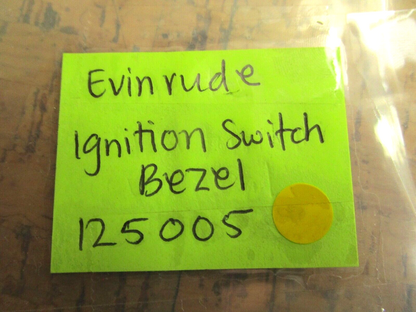 Evinrude
Ignition Switch
Bezel
125005